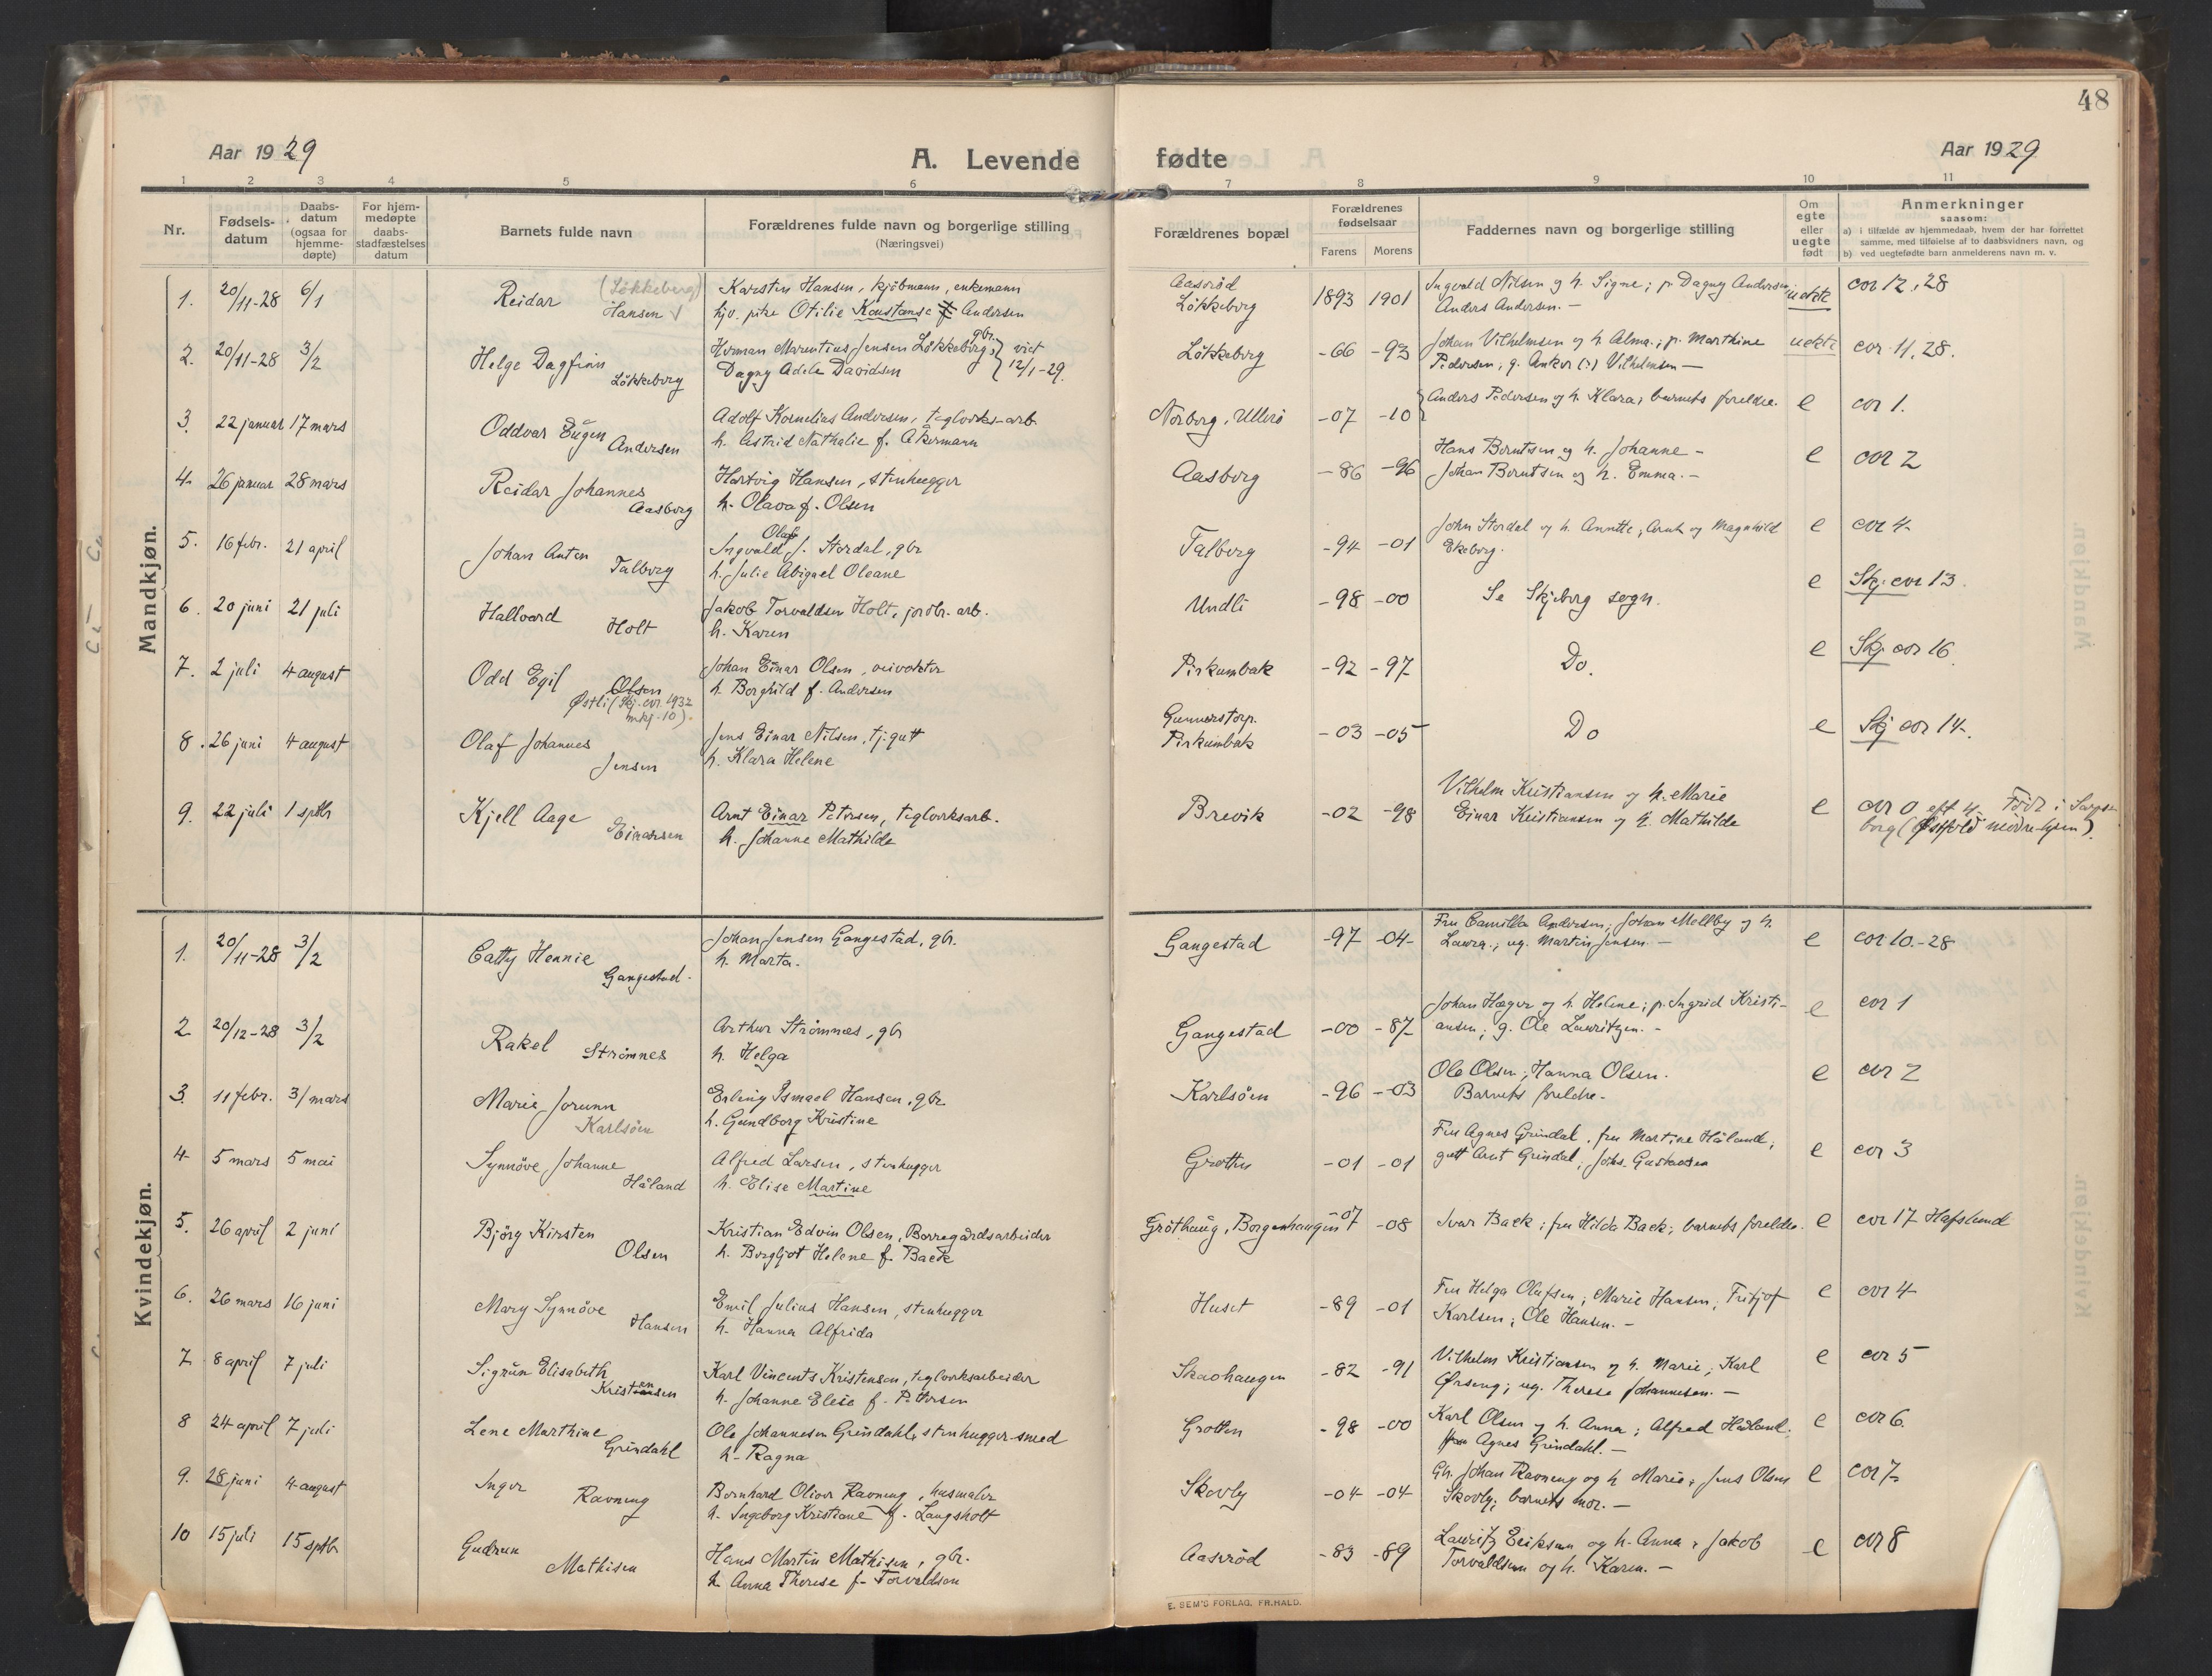 48
Aar 1929
A. Levende fødte
Aar 1929
1 2 3 4 5 6 7 8 9 10 11
Nr.
Fødsels-
datum
Daabs-
datum
(ogsaa for
hjemme-
døpte)
For hjem-
medøpte
daabs-
stadfæstelses
datum
Barnets fulde navn
Forældrenes fulde navn og borgerlige stilling
(Næringsvei)
Forældrenes bopæl
Forældrenes
fødselsaar
Farens Morens
Faddernes navn og borgerlige stilling
Om
egte
eller
uegte
født
Anmerkninger
saasom:
a) i tilfælde av hjemmedaab, hvem der har forrettet
samme, med tilføielse af to daabsvidners navn, og
b) ved uegtefødte barn anmelderens navn m. v.
Mandkjøn.
1. 20/11-28 6/1 Reidar (Løkkeberg) Hansen
Karsten Hansen, kjøbmann, enkemann
hjv. pike Otilie Konstanse f Andersen
Aasrød
Løkkeberg 1893 1901
Ingvald Nilsen og h. Signe; p. Dagny Andersen;
Anders Andersen. —
uekte cor 12, 28
2. 20/11-28 3/2 Helge Dagfinn Løkkeberg
Herman Marentius Jensen Løkkeberg, gbr.
Dagny Adele Davidsen } viet 12/1-29.
Løkkeberg -66 -93
Johan Vilhelmsen og h. Alma.; p. Marthine
Pedersen; g. Anker (:) Vilhelmsen —
uekte cor 11, 28.
3. 22 januar 17 mars Oddvar Eugen Andersen
Adolf Kornelius Andersen, teglverks-arb
h. Astrid Nathalie f. Åkermann
Norberg, Ullerø -07 -10
Anders Pedersen og h. Klara; barnets foreldre.
e cor 1.
4. 26 januar 28 mars Reidar Johannes Aasberg
Hartvig Hansen, stenhugger
h. Olava f. Olsen
Aasberg -86 -96
Hans Berntsen og h. Johanne -
Johan Berntsen og h. Emma. -
e cor 2
5. 16 febr. 21 april Johan Anton Talberg
Olaf
Ingvald J. Stordal, gbr
h. Julie Abigael Oleane
Talberg -94 -01
John Stordal og h. Annette; Arnt og Magnhild
Ekeberg.
e cor 4
6. 20 juni 21 juli Hallvard Holt
Jakob Torvaldsen Holt, jordbr. arb.
h. Karen
Undli -98 -00
Se Skjeberg sogn.
e Skj. cor 13.
7. 2 juli 4 august Odd Egil Olsen
Østli (Skj. cor. 1932
mkj. 10).
Johan Einar Olsen, veivokter
h. Borghild f. Andersen
Pirkumbak -92 -97
Do.
e Skj. cor 16.
8. 26 juni 4 august Olaf Johannes Jensen
Jens Einar Nilsen, tj.gutt
h. Klara Helene
Gunnerstorp.
Pirkumbak -03 -05
Do
e Skj cor 14.
9. 22 juli 1 septbr Kjell Aage Einarsen
Arnt Einar Petersen, teglverksarb.
h. Johanne Mathilde
Brevik -02 -98
Vilhelm Kristiansen og h. Marie
Einar Kristiansen og h. Mathilde
e cor 0 eft 4. Født i Sarps-
borg (Østfold medre-hjem).
Kvindekjøn.
1. 20/11-28 3/2 Catty Hennie Gangestad.
Johan Jensen Gangestad, gbr.
h. Marta.
Gangestad -97 -04
Fru Camilla Andersen; Johan Mellby og h.
Laura.; ug. Martin Jensen. —
e cor 10.-28
2 20/12-28 3/2 Rakel Strømnes
Arthur Strømnæs, gbr
h. Helga
Gangestad -00 -87
Johan Hæger og h. Helene; p. Ingrid Kristi-
ansen; g. Ole Lauritzen. -
e cor 1
3. 11 febr. 31 mars Marie Jorunn Karlsøen
Erling Ismael Hansen, gbr
h. Gundborg Kristine
Karlsøen -96 -03
Ole Olsen; Hanna Olsen.
Barnets foreldre.
e cor 2
4. 5 mars 5 mai Synnøve Johanne Håland
Alfred Larsen, stenhugger
h. Elise Martine
Grotten -01 -01
Fru Agnes Grindal, fru Martine Håland;
gutt Arnt Grindal; Johs. Gustavsen
e cor 3
5. 26 april 2 juni Bjørg Kirsten Olsen
Kristian Edvin Olsen, Borregårdsarbeider
h. Bergljot Helene f. Back
Grøthaug, Borgenhaugen -07 -08
Ivar Back; fru Hilda Back; barnets foreldre.
e cor 17 Hafslund
6. 26 mars 16 juni Mary Synnøve Hansen
Emil Julius Hansen, stenhugger
h. Hanna Alfrida
Huset -89 -01
Fru Helga Olafsen; Marie Hansen; Fritjof
Karlsen; Ole Hansen. -
e cor 4
7 8 april 7 juli Sigrun Elisabeth Kristensen
Karl Vincents Kristensen, teglverksarbeider
h. Johanne Elise f. Petersen
Skaohaugen -82 -91
Vilhelm Kristiansen og h. Marie; Karl
Ørseng; ug. Therese Johannesen. —
e cor 5
8 24 april 7 juli Lene Marthine Grindahl
Ole Johannesen Grindahl, stenhugger-smed
h. Ragna
Grotten -98 -00
Karl Olsen og h. Anna; Alfred Håland;
fru Agnes Grindahl. —
e cor 6.
9. 28 juni 4 august Inger Ravneng
Bernhard Oliver Ravneng, husmaler
h. Ingeborg Kristiane f. Langsholt
Skovly -04 -04
Gb. Johan Ravneng og h Marie; Jens Olsen
Skovly; barnets mor. —
e cor 7
10 15 juli 15 septbr Gudrun Mathisen
Hans Martin Mathisen, gbr.
h. Anna Therese f. Torvaldsen
Aaserød -83 -89
Lauritz Eriksen og h. Anna, Jakob
Torvaldsen og h. Karen. —
e cor 8
E. SEM'S FORLAG, FR.HALD.